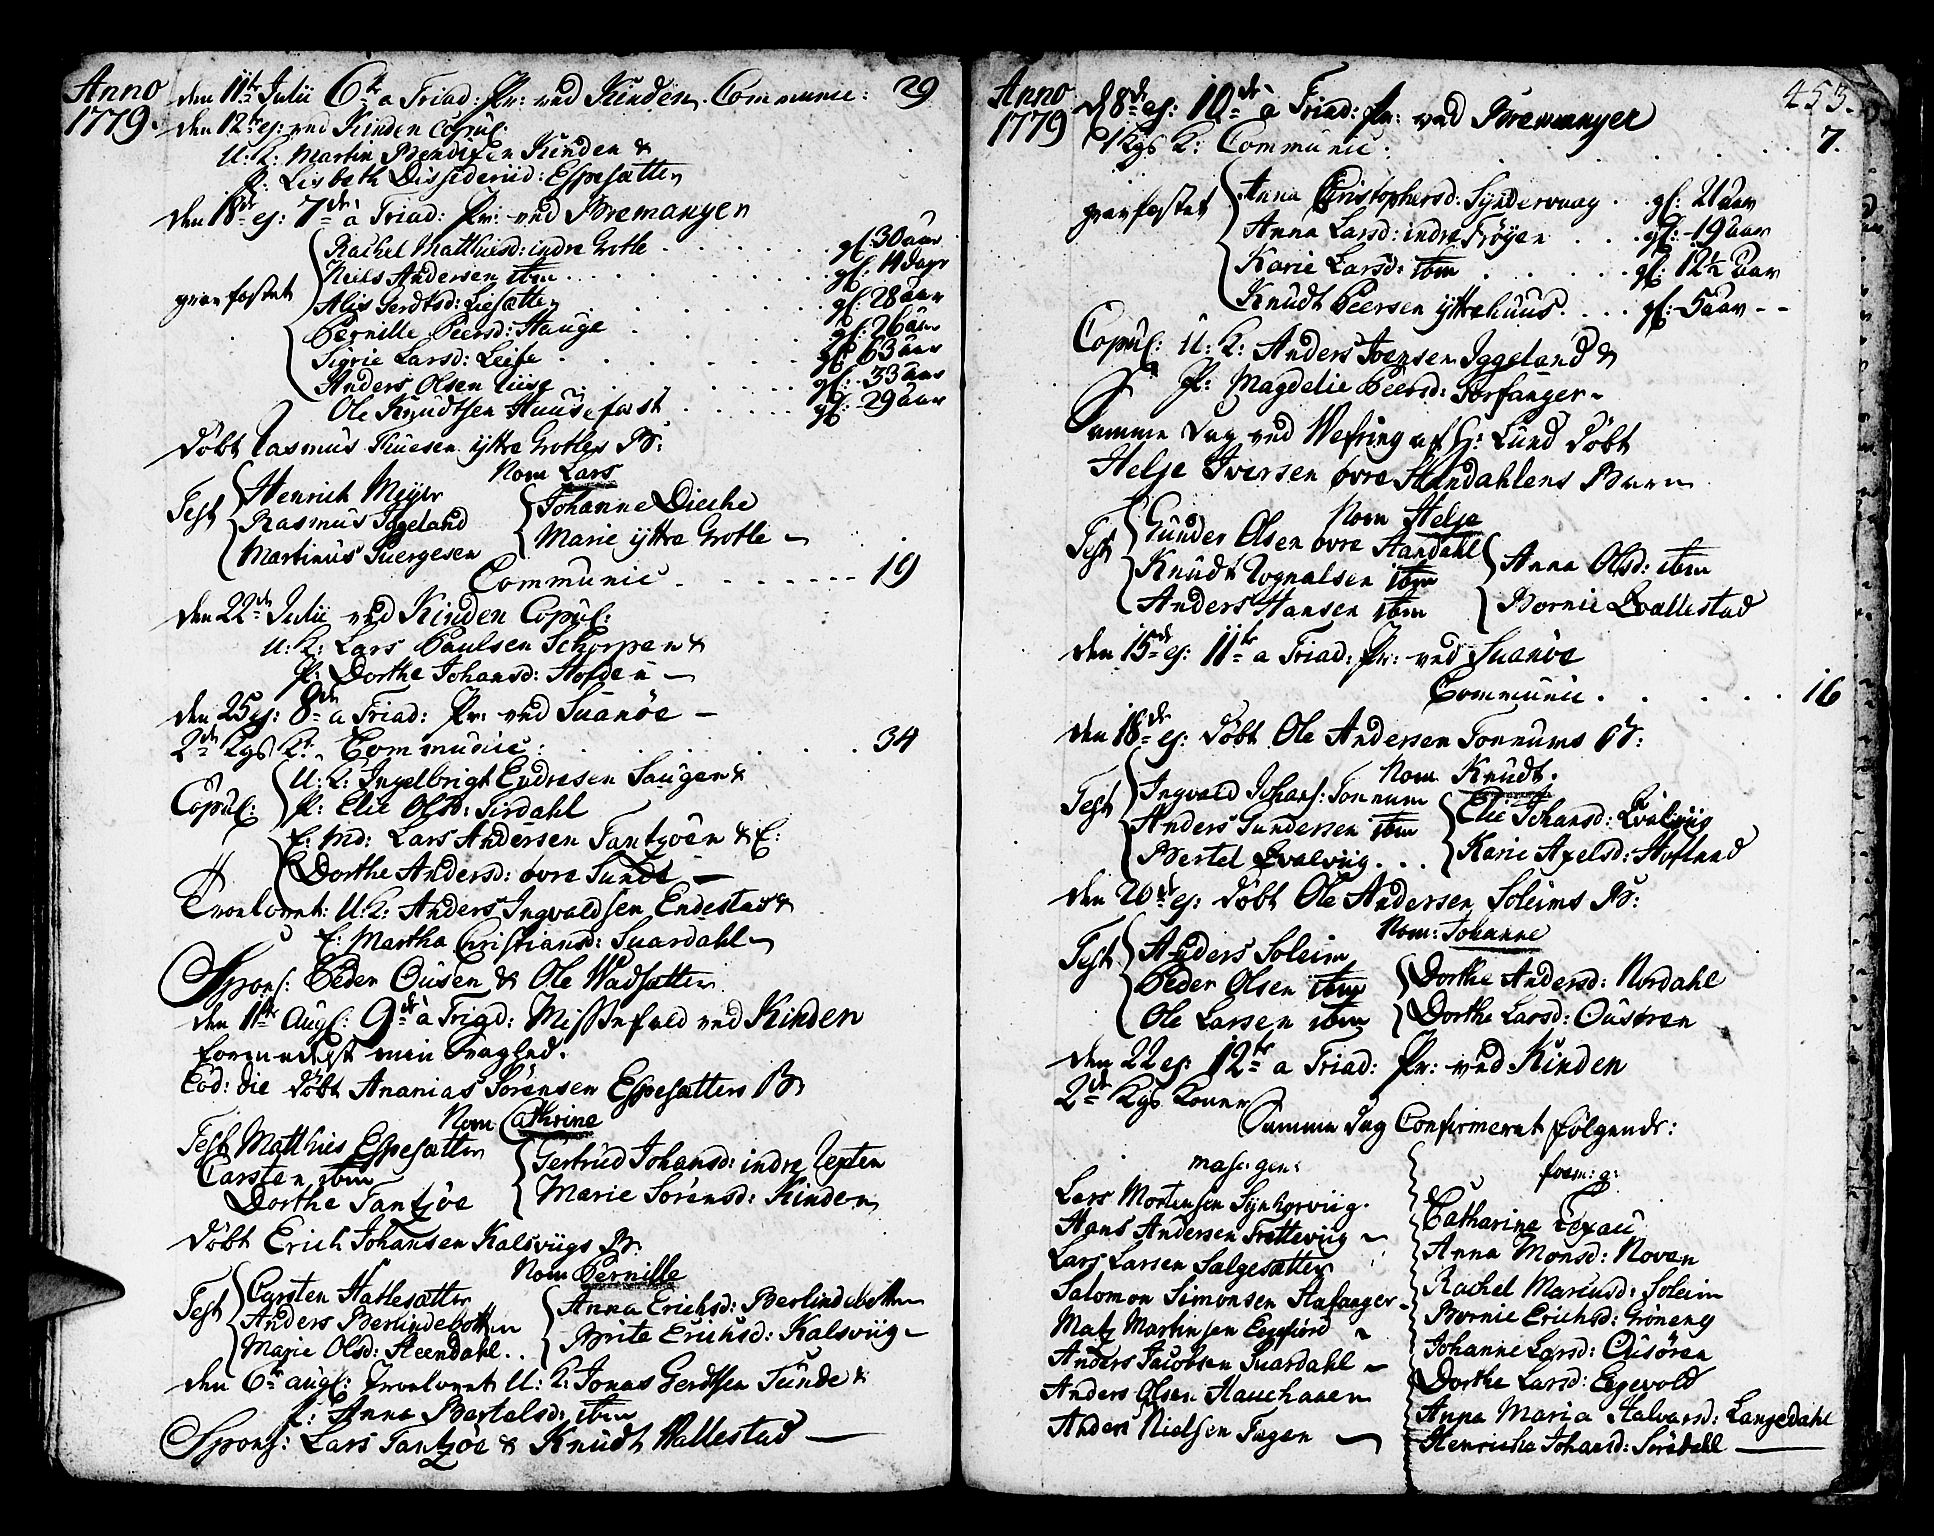 Anno 1779.
den 11te Julii 6te a Triad: Pr: ved Kinden. Communic: 29
den 12te ej: ved Kinden Copul:
U: K: Martin Bendixen Kinden &
P: Lisbeth Dissiderid: Espesætter
den 18de ej: 7de a Triad: Pr: ved Bremanger
Rachel Matthiesd: indre Grotle . . . gl: 30 aar
Neils Andersen ibm . . . gl: 14 dage
græsfæstet
Alis Gerdtsd: Liesætter . . . gl: 28 aar
Pernille Peersd: Hauge . . . gl: 26 aar
Sigrie Larsd: Leise . . . gl: 63 aar
Anders Olsen Liise . . . gl: 33 aar
Ole Knudtsen Huusefæst . . . gl: 29 aar
døbt Rasmus Tiuesen yttre Grotles B:
Nom Lars
Test Henrich Meyer
Rasmus Iggeland
Martinus Suergesen
Johanne Dieche
Marie yttre Grotle
Communic . . . 19
den 22de Julii ved Kinden Copul:
U: K: Lars Paulsen Schorpen &
P: Dorthe Johansd: Hofden
den 25 ej: 8de a Triad: Pr: ved Suanøe
2de Kgs K: Communic: . . . 34
Copul: U: K: Ingelbrigt Endresen Saugen &
P: Elie Olsd: Sirdahl
E: Md: Lars Andersen Tantzøen & E:
Dorthe Andersd: øvre Sunde
Troelovet: U: K: Anders Ingvaldsen Endestad &
E: Martha Christiansd: Suardahl
Spons: Peder Ousen & Ole Wadsætter
den 1te Aug: 9de a Triad: Missefald ved Kinden
formedelst min Svaghed.
Eod: die døbt Ananias Sørensen Espesætters B:
Nom Cathrine
Test Matthies Espesætter
Carsten ibm
Dorthe Tantzøe
Gertrud Johansd: indre Repten
Marie Sørensd: Kinden
døbt Erich Johansen Kalsviigs B:
Nom Pernille
Test Carsten Hatlesætter
Anders Berlindebotten
Marie Olsd: Steendahl . .
Anna Erichsd: Berlindebotten
Brite Erichsd: Kalsviig
den 6te aug: Troelovet U: K: Jonas Gerdtsen Sunde &
P: Anne Bertelsd: ibm
Spons: Lars Tantzøe & Knudt Wallestad
453.
Anno 1779
d 8de ej: 10de a Triad: Pr: ved Bremanger
1 Kgs K: Communic: . . . 7.
græsfæstet
Anna Christophersd: Syndervaag . . gl: 21 aar
Anna Larsd: indre Frøyen . . . gl: 19 aar
Karie Larsd: ibm . . . gl: 12½ aar
Knudt Peersen yttrehuus . . . gl: 5 aar
Copul: U: K: Anders Joensen Iggeland &
P: Magdelie Peersd: Torfanger
Samme Dag ved Wefring af H: Lund døbt
Helje Iversen øvre Standahlens Barn
Nom Helje
Test Gunder Olsen øvre Standahl
Knudt Rognalsen ibm
Anders Hansen ibm
Anna Olsd: ibm
Bornie Qvallestad
den 15de ej: 11te a Triad: Pr: ved Suanøe
Communic . . . 16
den 18de ej: døbt Ole Andersen Tonnums B:
Nom Knudt.
Test Ingvald Johans: Tonnum
Anders Gundersen ibm
Bertel Qvalviig . . .
Elie Johansd: Qvalviig
Karie Axelsd: Hofland
den 20de ej: døbt Ole Andersen Soleims B:
Nom: Johanne
Test Anders Soleim
Peder Olsen ibm
Ole Larsen ibm
Dorthe Andersd: Nordahl
Dorthe Larsd: Ousøren
den 22 ej: 12te a Triad: Pr: ved Kinden
2de Kgs Koner
Samme dag Confirmeret følgende:
masc: gen:
Lars Mortensen Synhorviig.
Hans Andersen Trætteviig
Lars Larsen Salgesætter
Salomon Simonsen Stafanger
Matz Martinsen Eggefiord
Anders Jacobsen Suardahl
Anders Olsen Stauehaaen
Anders Nielsen Fugen
foem: g:
Catharina Texau
Anna Monsd: Noven
Rachel Mariusd: Soleim
Bornie Erichsd: Grøneng
Johanne Larsd: Ousøren
Dorthe Larsd: Eggevold
Anna Maria Halvarsd: Langedahl
Henricha Johansd: Sørdahl